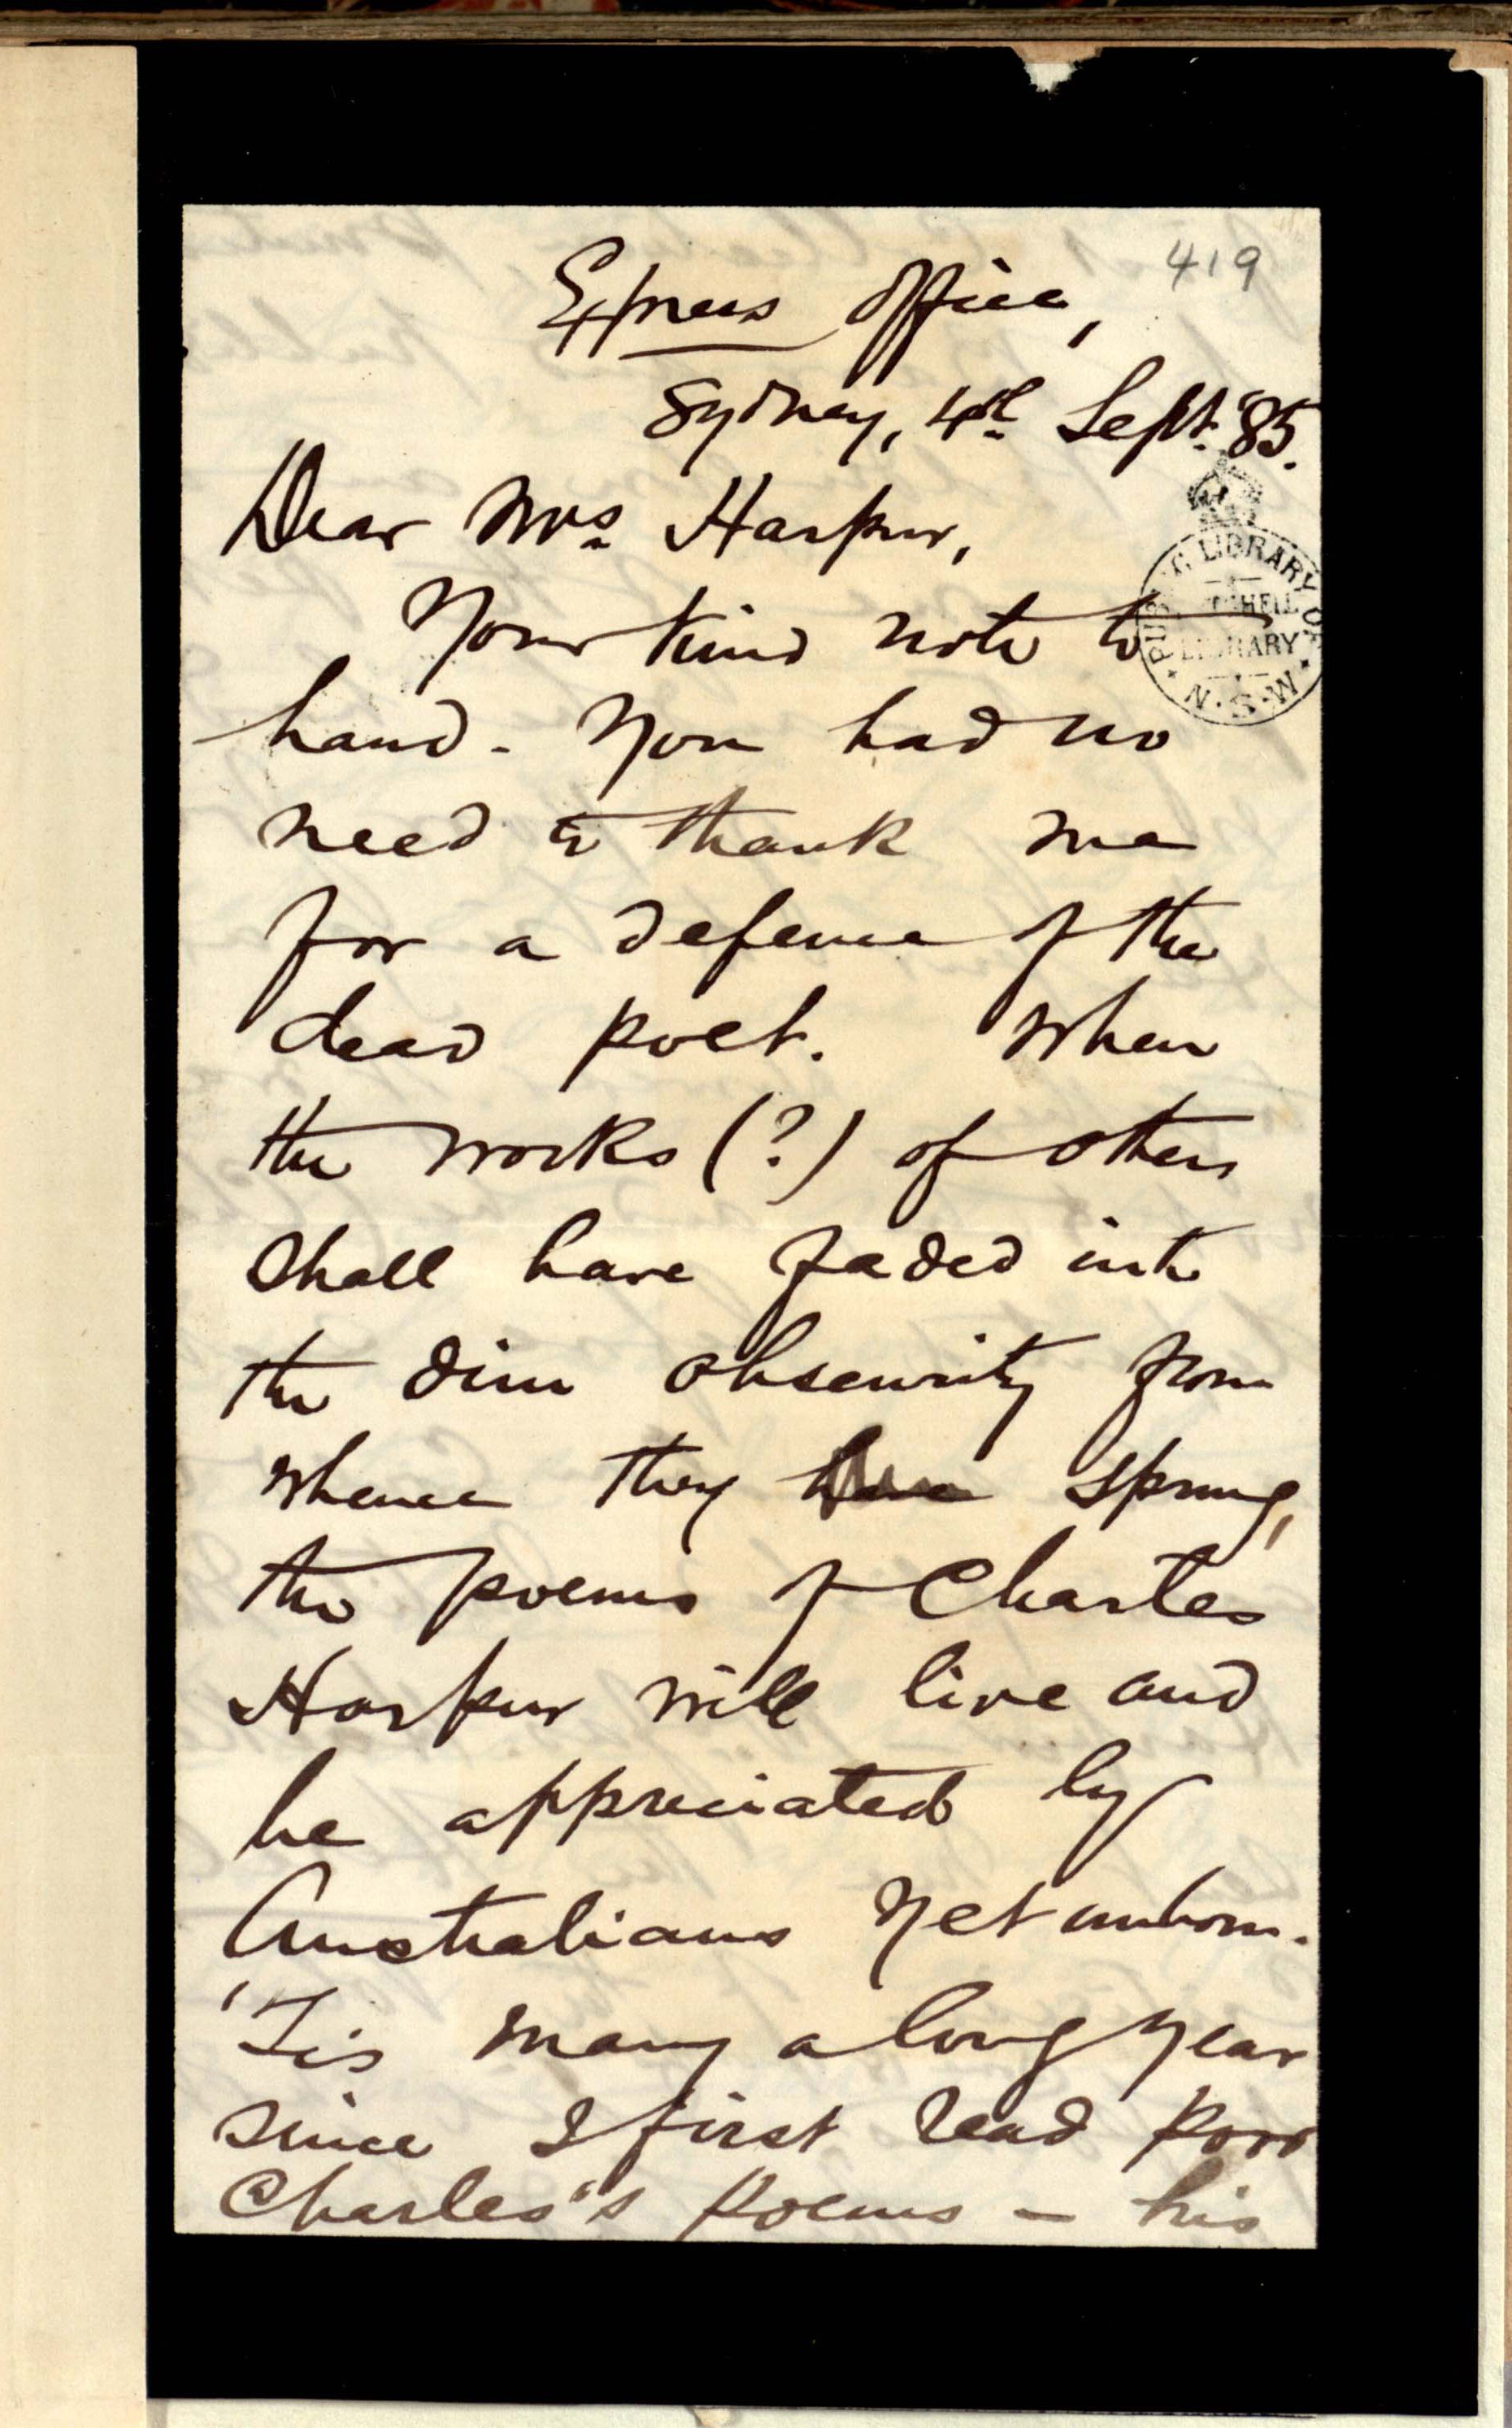 419
Express Office,
Sydney, 4th Sept. '85.
Dear Mrs Harpur,
Your kind note to
hand. You had no
need to thank me
for a defence of the
dead poet. When
the works (?) of others
shall have faded into
the dim obscurity from
whence they have sprung,
the poems of Charles
Harpur will live and
be appreciated by
Australians yet unborn.
'Tis many a long year
since I first read poor
Charles's poems – his
PUBLIC LIBRARY OF
MITCHELL
LIBRARY
N.S.W.